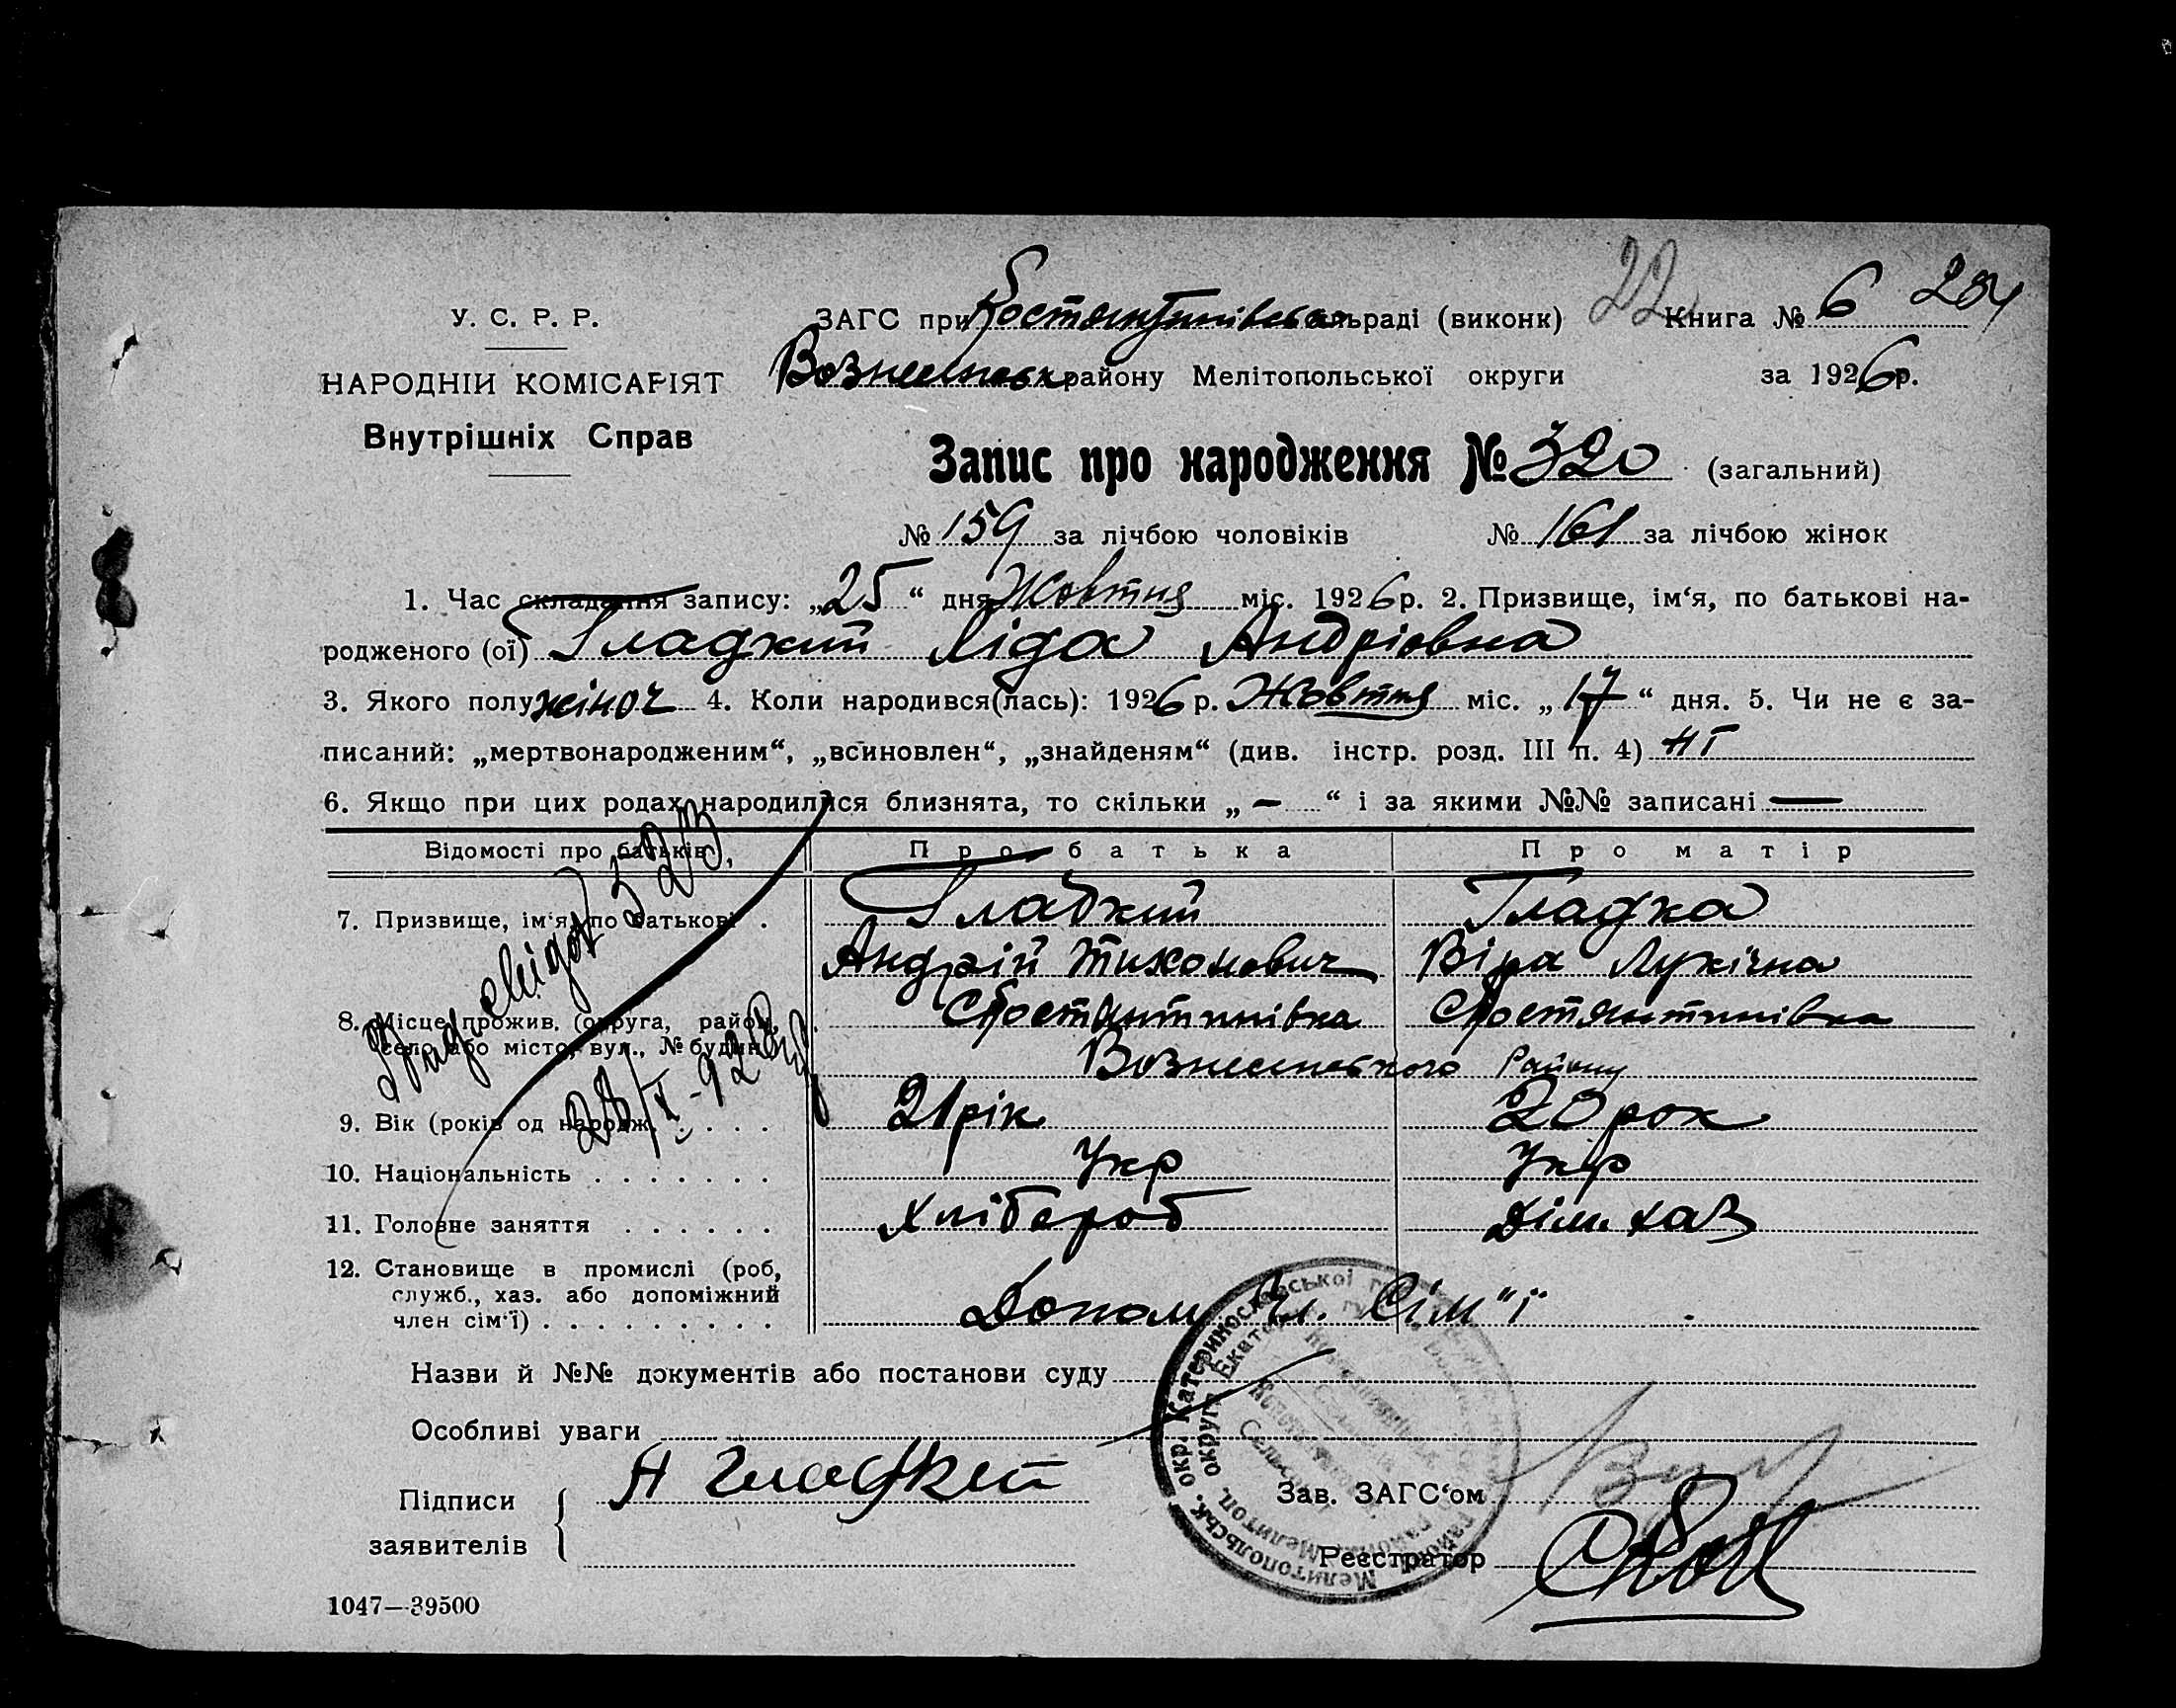 22 284
У. С. Р. Р. ЗАГС при Костянтинівськ сільраді (виконк) Книга № 6
НАРОДНІЙ КОМІСАРІЯТ Вознесенськ району Мелітопольської округи за 1926р.
Внутрішніх Справ
Запис про народження № 320 (загальний)
№ 159 за лічбою чоловіків № 161 за лічбою жінок
1. Час складання запису: „25“ дня Жовтня міс. 1926р. 2. Призвище, ім‘я, по батькові на-
родженого (ої) Гладкий Ліда Андріовна
3. Якого полу жіноч 4. Коли народився(лась): 1926 р. Жовтня міс. „17“ дня. 5. Чи не є за-
писаний: „мертвонародженим“, „всиновлен“, „знайденям“ (див. інстр. розд. III п. 4) НІ
6. Якщо при цих родах народилися близнята, то скільки „—“ і за якими №№ записані —
Відомості про батьків Про батька Про матір
7. Призвище, ім‘я, по батькові . Гладкий Гладка
Андрій Тихонович Віра Лукічна
8. Місце прожив. (округа, район, Костянтинівка Костянтинівка
село або місто, вул., № будин. Вознесенського Району
9. Вік (років од народж. . . . . 21 рік 20 рок
10. Національність . . . . . . . Укр Укр
11. Головне заняття . . . . . . Хлібороб Дім. хаз
12. Становище в промислі (роб,
служб., хаз. або допоміжний
член сім‘ї) . . . . . . . . . Допом. Чл. Сім"ї
Назви й №№ документів або постанови суду
Особливі уваги
Підписи А Гладкий Зав. ЗАГС‘ом
заявителів Реєстратор
1047—39500